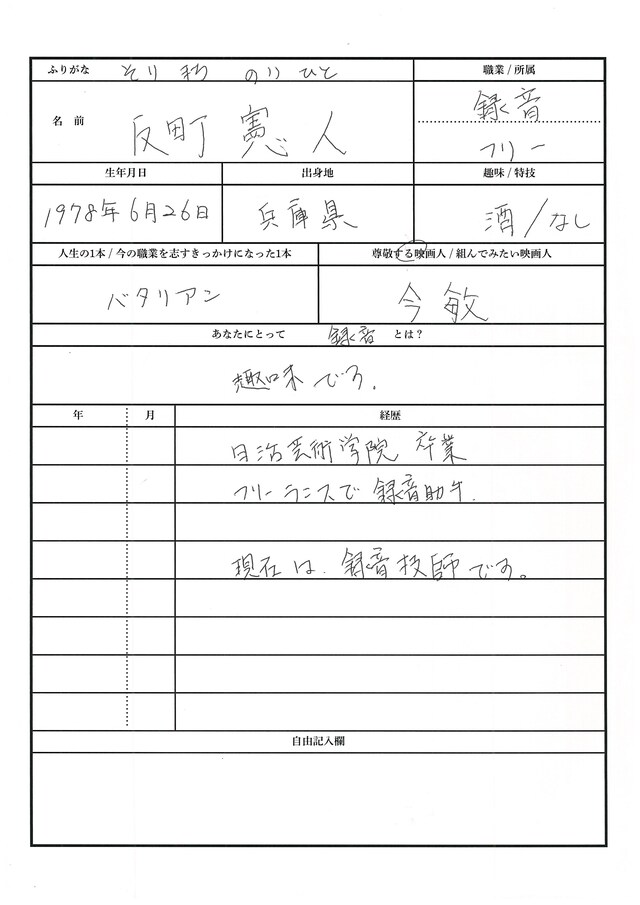 ふりがな そりまち のりひと
職業 / 所属
名 前 反町 憲人
録音
フリー
生年月日
出身地
趣味 / 特技
1978年6月26日
兵庫県
酒/なし
人生の1本 / 今の職業を志すきっかけになった1本
尊敬する映画人 / 組んでみたい映画人
バタリアン
今敏
あなたにとって 録音 とは?
趣味です.
年 月 経歴
日活芸術学院 卒業
フリーランスで 録音助手.
現在は、録音技師です。
自由記入欄